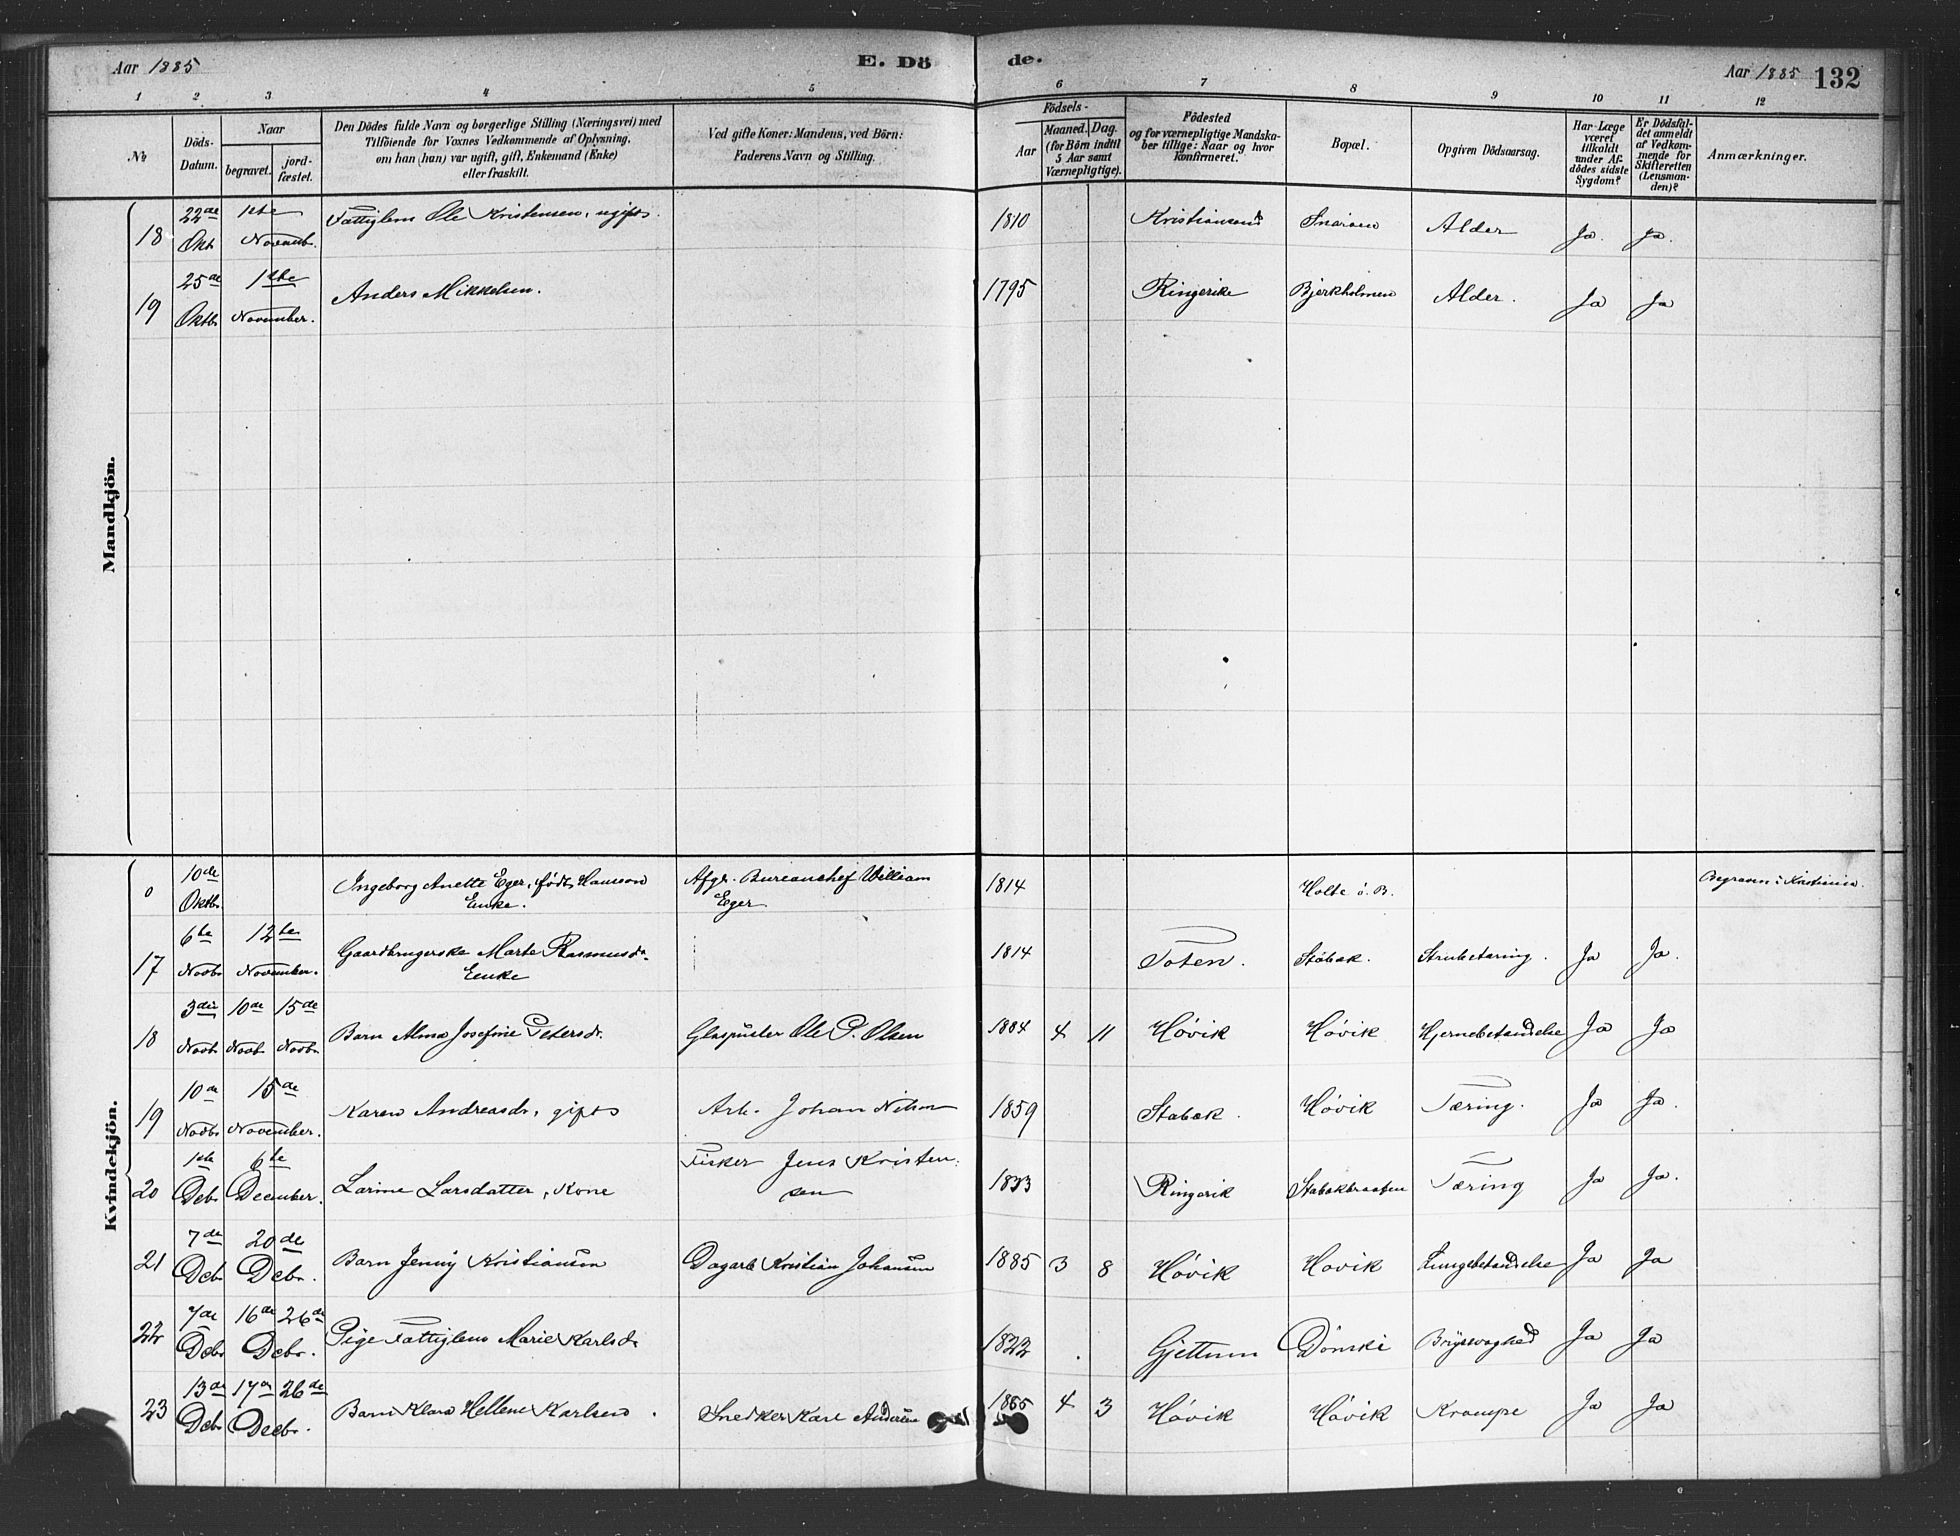 Aar 1885 E. Dö de. Aar 1885 132
1 2 3 4 5 6 7 8 9 10 11 12
No
Döds-
Datum.
Naar
begravet.
jord-
fæstet.
Den Dödes fulde Navn og borgerlige Stilling (Næringsvei) med
Tilföiende for Voxnes Vedkommende af Oplysning,
om han (hun) var ugift, gift, Enkemand (Enke)
eller fraskilt.
Ved gifte Koner: Mandens, ved Börn:
Faderens Navn og Stilling.
Födsels-
Aar
Maaned.
Dag.
(for Börn indtil
5 Aar samt
Værnepligtige).
Födested
og for værnepligtige Mandska-
ber tillige: Naar og hvor
konfirmeret.
Bopæl.
Opgiven Dödsaarsag.
Har Læge
været
tilkaldt
under Af-
dödes sidste
Sygdom?
Er Dödsfal-
det anmeldt
af Vedkom-
mende for
Skifteretten
(Lensman-
den)?
Anmærkninger.
Mandkjön.
18 22de Okt. 1ste Novemb. Fattiglem Ole Kristensen, ugift. 1810 Kristiansand Snaröen Alder Ja. Ja.
19 25de Oktb. 1ste November. Anders Mikkelsen. 1795 Ringerike Bjerkholmen Alder. Ja Ja
Kvindekjön.
0 10de Oktb. Ingeborg Anette Eger, født Hansson
Enke. Afgr. Bureauchef William
Eger 1814 Holte ö. B. Begraven i Kristiania.
17 6te Novbr 12te November. Gaardbrugerske Marte Rasmusdr.
Enke 1814 Toten. Stabæk. Strubetæring. Ja Ja.
18 3die Novbr 10de Novbr 15de Novbr Barn Alma Josefine Petersdr. Glaspuster Ole P. Olsen 1884 4 11 Høvik Høvik Hjernebetændelse Ja Ja
19 10de Novbr 15de November. Karen Andreasdr, gift Arb. Johan Nilsen 1859 Stabæk. Høvik Tæring. Ja Ja.
20 1ste Debr 6te December. Larine Larsdatter, Kone Fisker Jens Kristen-
sen Ringerik Stabækbraaten Tæring Ja Ja.
21 7de Debr 20de Debr. Barn Jenny Kristiansen Dagarb. Kristian Johansen 1885 3 8 Høvik Høvik Lungebetændelse Ja Ja
22 7de Debr 16de 26de Debr. Pige Fattiglem Marie Karlsdr. 1822 Gjettum Dønski Brystsvaghed Ja Ja
23 13de Debr 17de 26de Decbr. Barn Klara Hellene Karlsen. Snedker Karl Andersen 4 3 Høvik Høvik Krampe Ja Ja